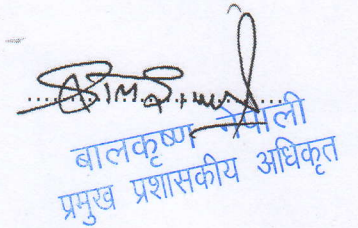 बालकृष्ण नेपाली
प्रमुख प्रशासकीय अधिकृत